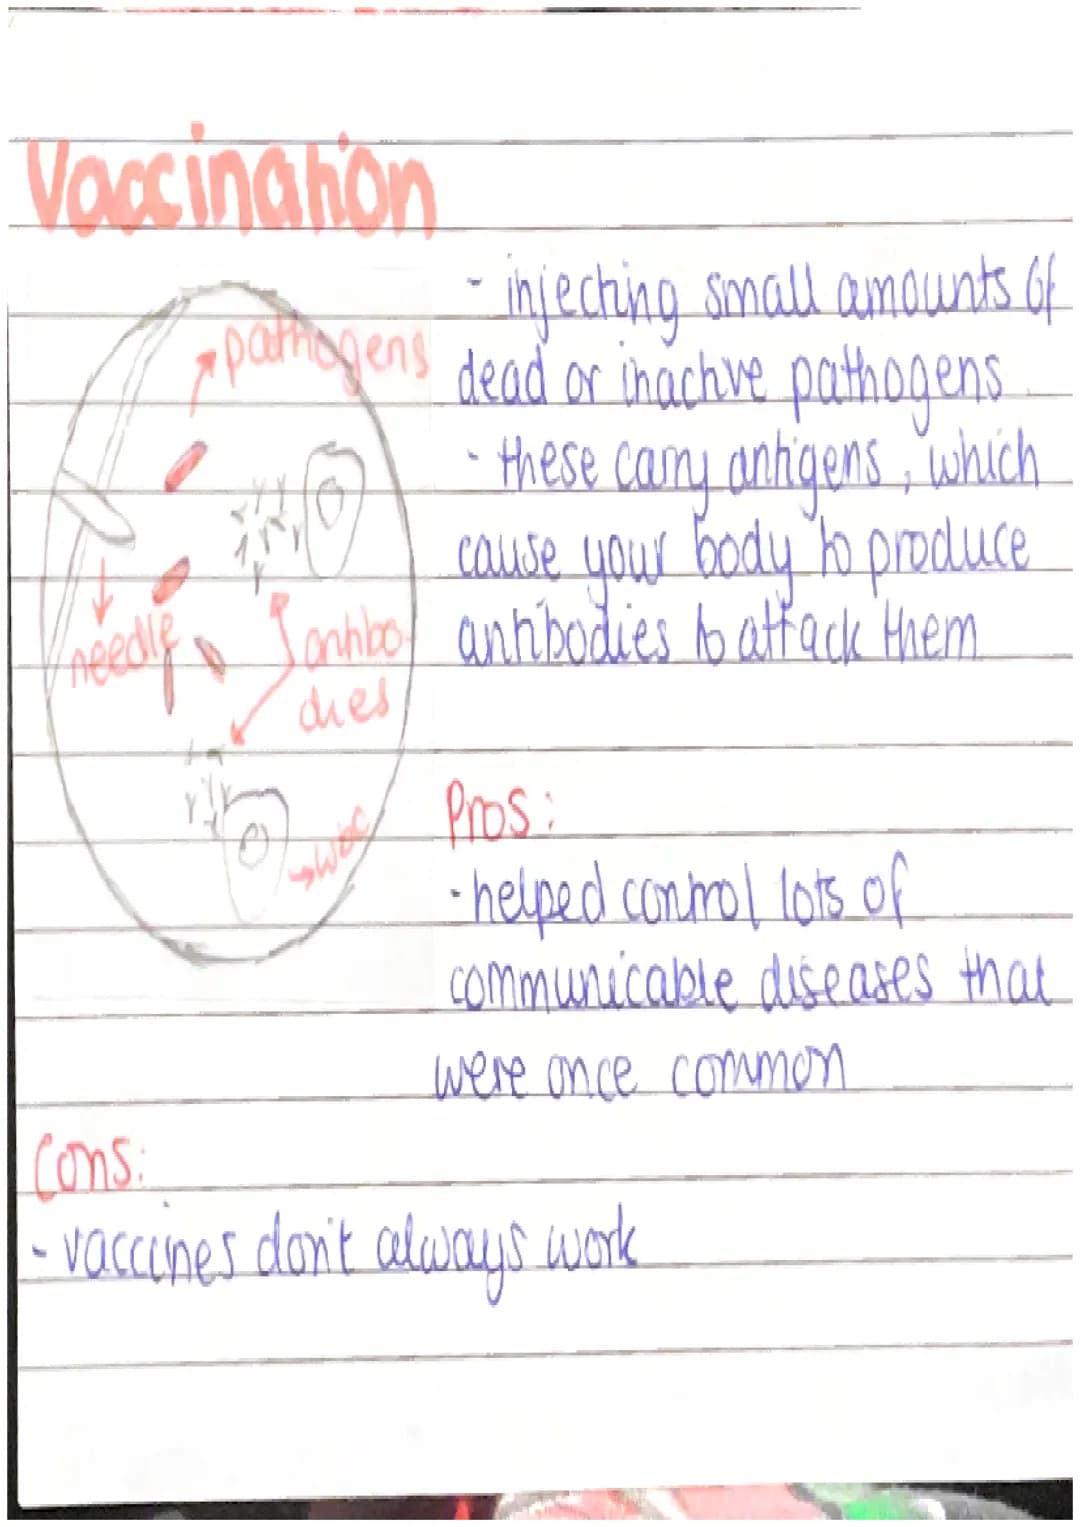 Vaccination
pathogens
needle
antibo-
dies
→WBC
- injecting small amounts of
dead or inactive pathogens
- these carry antigens, which
cause your body to produce
antibodies to attack them
Pros:
- helped control lots of
communicable diseases that
were once common
Cons:
- vacccines don't always work